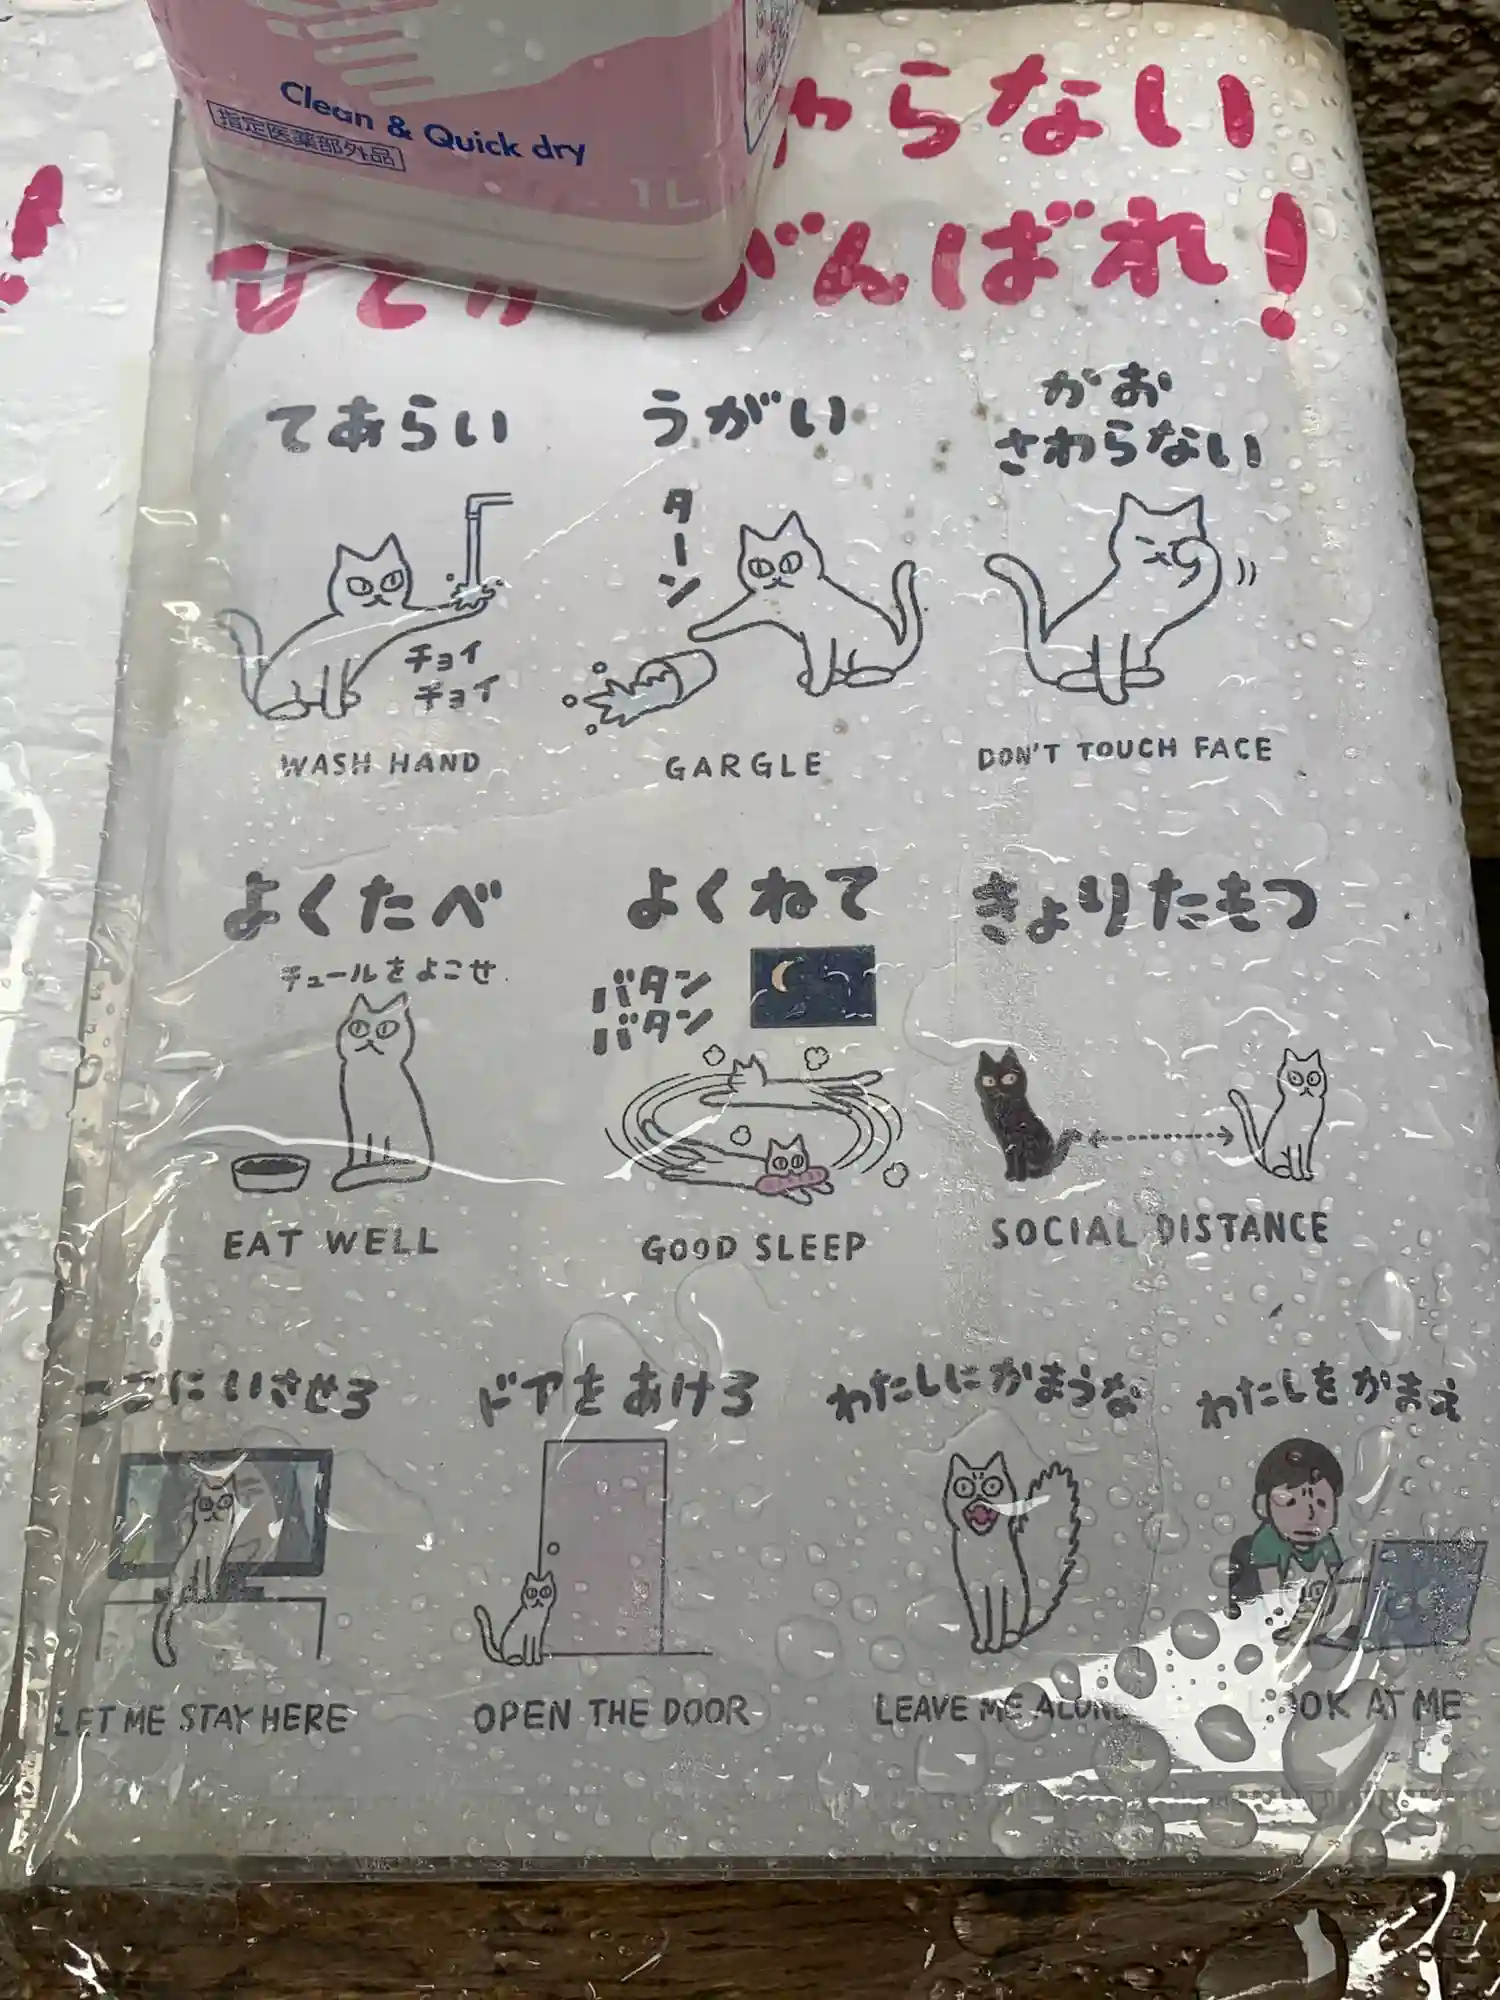 Clean & Quick dry
指定医薬部外品
1L
わらない
がんばれ!
てあらい
うがい
かお
さわらない
ターン
チョイ
チョイ
WASH HAND
GARGLE
DON'T TOUCH FACE
よくたべ
よくねて
きょりたもつ
チュールをよこせ
バタン
バタン
EAT WELL
GOOD SLEEP
SOCIAL DISTANCE
ここにいさせろ
ドアをあけろ
わたしにかまうな
わたしをかまえ
LET ME STAY HERE
OPEN THE DOOR
LEAVE ME ALONE
LOOK AT ME